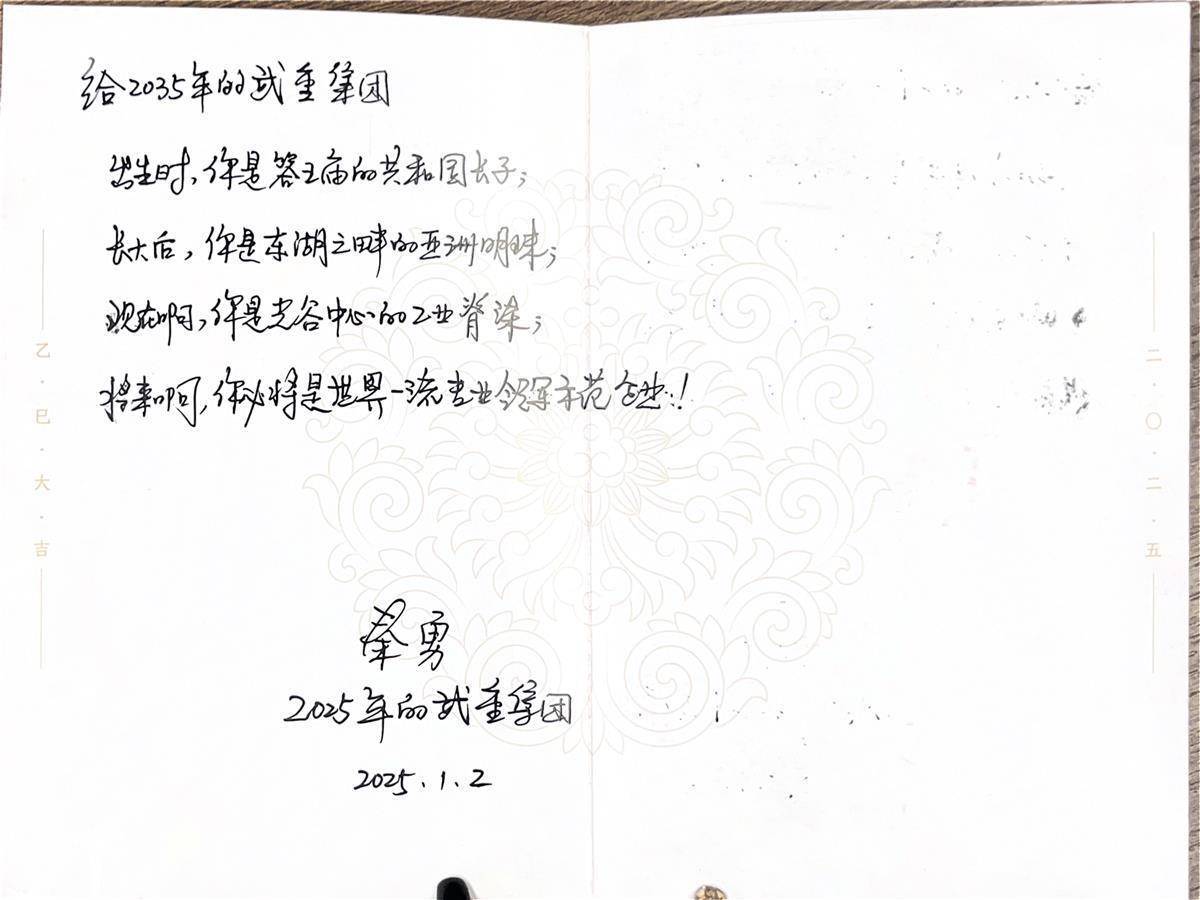 给2035年的武重集团
出生时,你是答王庙的共和国长子;
长大后,你是东湖之畔的亚洲明珠;
现在啊,你是光谷中心的工业脊梁;
将来啊,你必将是世界一流专业领军示范企业!
蔡勇
2025年的武重集团
2025.1.2
乙·巳·大·吉
二·〇·二·五